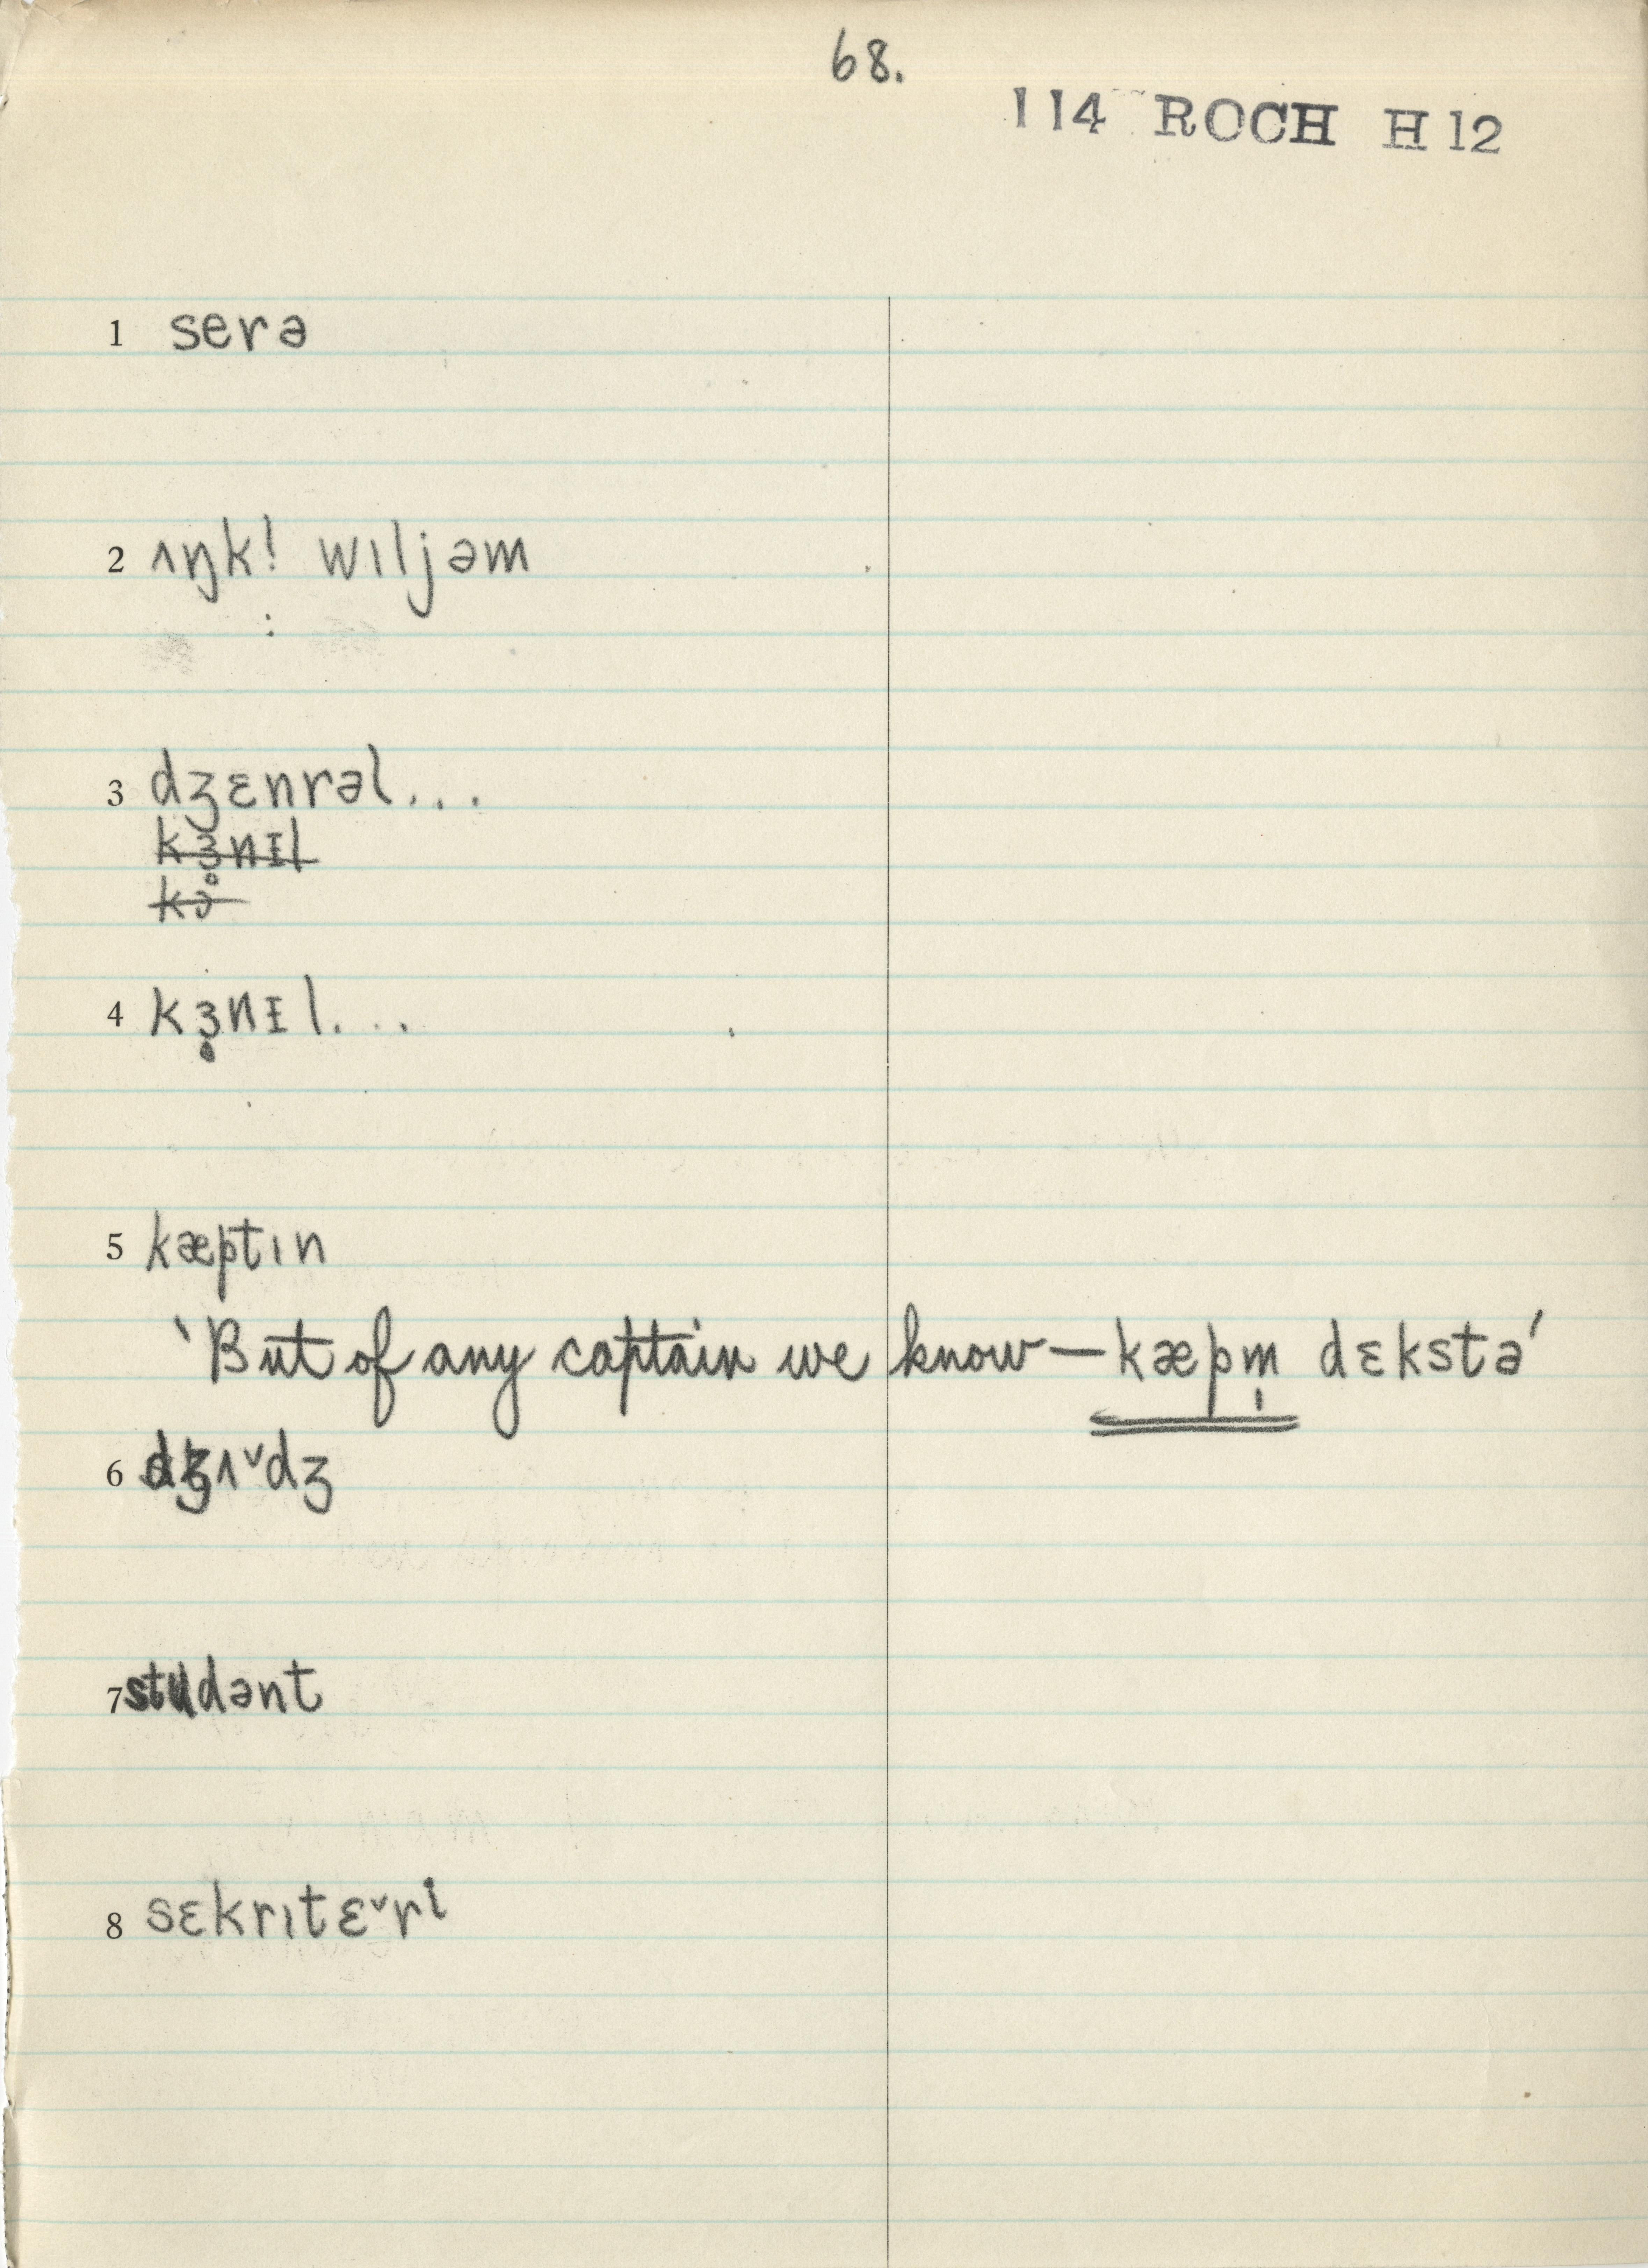 68.
114 ROCH H12
1 serə
2 ʌŋk! wɪljəm
3 dʒɛnrəl...
k̶ɜ̶n̶ɪ̶l̶
4 kɜ̣nɪl...
5 kæptɪn
‘But of any captain we know—kæpm̩ dɛkstə’
6 dʒʌ˅dʒ
7 studənt
8 sɛkrɪtɛ˅ri